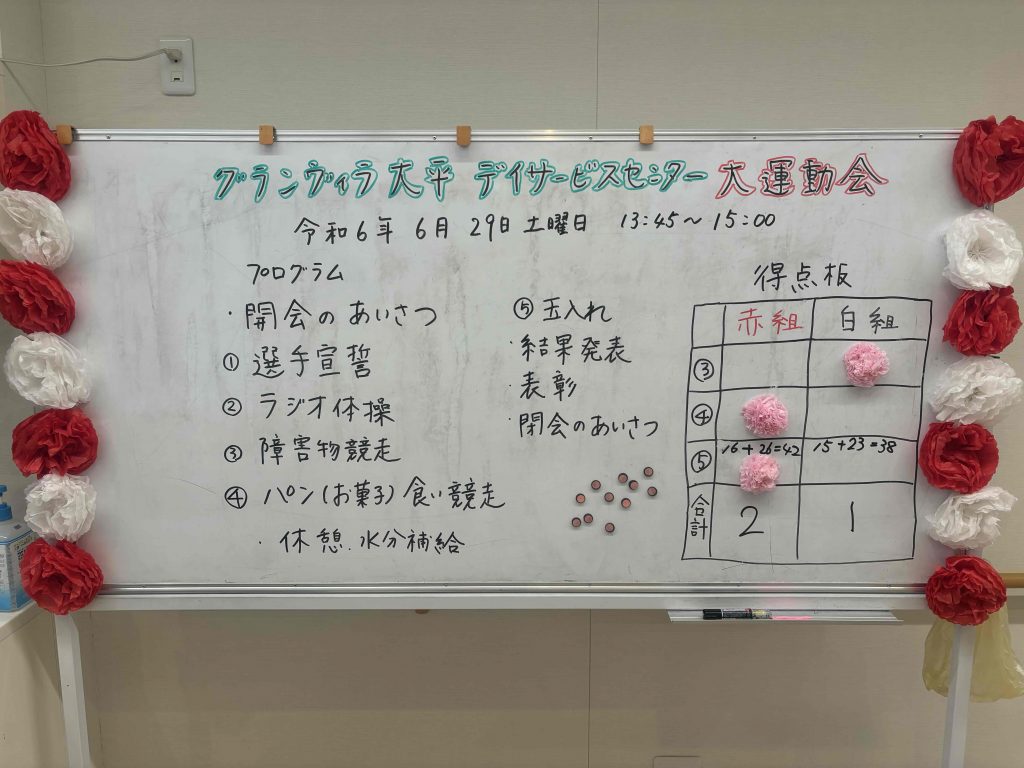 グランヴィラ大平 デイサービスセンター 大運動会
令和6年 6月 29日 土曜日 13:45～15:00
プログラム
・開会のあいさつ
① 選手宣誓
② ラジオ体操
③ 障害物競走
④ パン(お菓子)食い競走
・休憩.水分補給
⑤ 玉入れ
・結果発表
・表彰
・閉会のあいさつ
得点板
赤組 白組
③
④
⑤ 16+26=42 15+23=38
合計 2 1